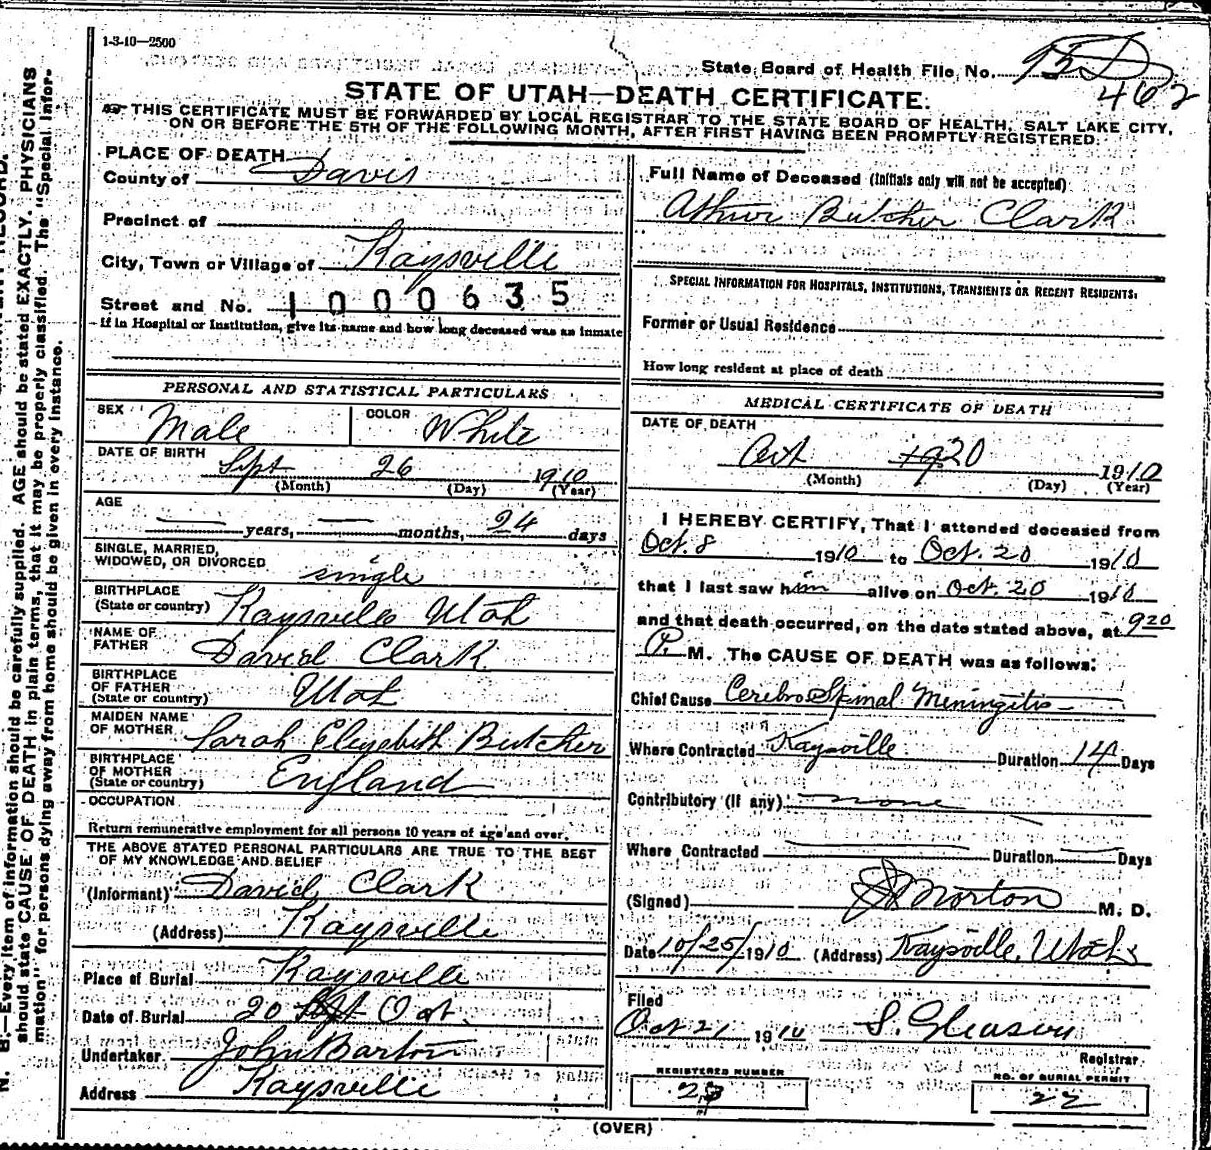 1-3-10—2500
State Board of Health File No. 95D
462
STATE OF UTAH—DEATH CERTIFICATE.
THIS CERTIFICATE MUST BE FORWARDED BY LOCAL REGISTRAR TO THE STATE BOARD OF HEALTH, SALT LAKE CITY,
ON OR BEFORE THE 5TH OF THE FOLLOWING MONTH, AFTER FIRST HAVING BEEN PROMPTLY REGISTERED.
PLACE OF DEATH
County of Davis
Precinct of
City, Town or Village of Kaysville
Street and No. 1000635
If in Hospital or Institution, give its name and how long deceased was an inmate
PERSONAL AND STATISTICAL PARTICULARS
SEX Male COLOR White
DATE OF BIRTH Sept 26 1910
(Month) (Day) (Year)
AGE
— years, — months, 24 days
SINGLE, MARRIED,
WIDOWED, OR DIVORCED single
BIRTHPLACE
(State or country) Kaysville Utah
NAME OF
FATHER David Clark
BIRTHPLACE
OF FATHER
(State or country) Utah
MAIDEN NAME
OF MOTHER Sarah Elizabeth Butcher
BIRTHPLACE
OF MOTHER
(State or country) England
OCCUPATION
Return remunerative employment for all persons 10 years of age and over.
THE ABOVE STATED PERSONAL PARTICULARS ARE TRUE TO THE BEST
OF MY KNOWLEDGE AND BELIEF
(Informant) David Clark
(Address) Kaysville
Place of Burial Kaysville
Date of Burial 20 Oct.
Undertaker John Barton
Address Kaysville
Full Name of Deceased (Initials only will not be accepted)
Arthur Butcher Clark
SPECIAL INFORMATION FOR HOSPITALS, INSTITUTIONS, TRANSIENTS OR RECENT RESIDENTS.
Former or Usual Residence
How long resident at place of death
MEDICAL CERTIFICATE OF DEATH
DATE OF DEATH
Oct 20 1910
(Month) (Day) (Year)
I HEREBY CERTIFY, That I attended deceased from
Oct. 8 1910 to Oct. 20 1910
that I last saw him alive on Oct. 20 1910
and that death occurred, on the date stated above, at 920
P. M. The CAUSE OF DEATH was as follows:
Chief Cause Cerebro Spinal Meningitis
Where Contracted Kaysville Duration 14 Days
Contributory (if any) none
Where Contracted — Duration — Days
(Signed) Morton M. D.
Date 10/25/1910 (Address) Kaysville, Utah
Filed
Oct 21 1910 S. Gleason
Registrar
REGISTERED NUMBER NO. OF BURIAL PERMIT
22
(OVER)
N. B.—Every item of information should be carefully supplied. AGE should be stated EXACTLY. PHYSICIANS
should state CAUSE OF DEATH in plain terms, that it may be properly classified. The "Special Infor-
mation" for persons dying away from home should be given in every instance.